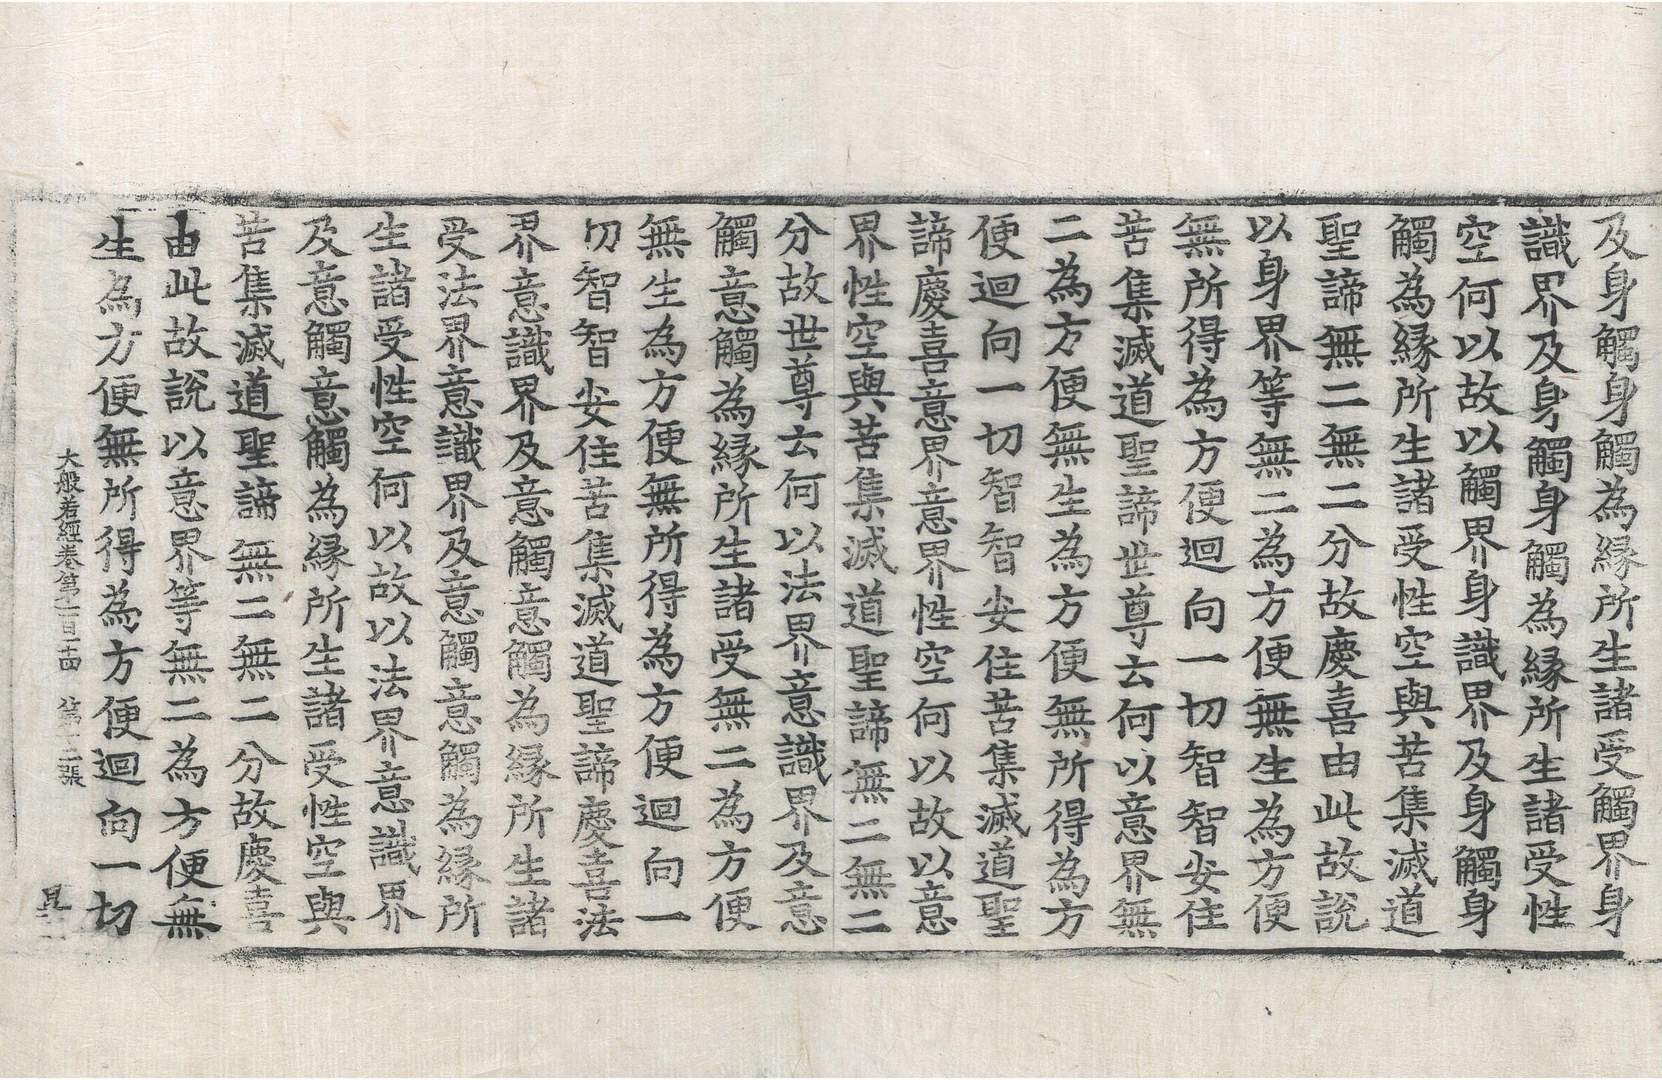 及身觸身觸為縁所生諸受觸界身
識界及身觸身觸為縁所生諸受性
空何以故以觸界身識界及身觸身
觸為縁所生諸受性空與苦集滅道
聖諦無二無二分故慶喜由此故說
以身界等無二為方便無生為方便
無所得為方便迴向一切智智安住
苦集滅道聖諦世尊云何以意界無
二為方便無生為方便無所得為方
便迴向一切智智安住苦集滅道聖
諦慶喜意界意界性空何以故以意
界性空與苦集滅道聖諦無二無二
分故世尊云何以法界意識界及意
觸意觸為縁所生諸受無二為方便
無生為方便無所得為方便迴向一
切智智安住苦集滅道聖諦慶喜法
界意識界及意觸意觸為縁所生諸
受法界意識界及意觸意觸為縁所
生諸受性空何以故以法界意識界
及意觸意觸為縁所生諸受性空與
苦集滅道聖諦無二無二分故慶喜
由此故說以意界等無二為方便無
生為方便無所得為方便迴向一切
大般若經卷第一百十四 第十二張